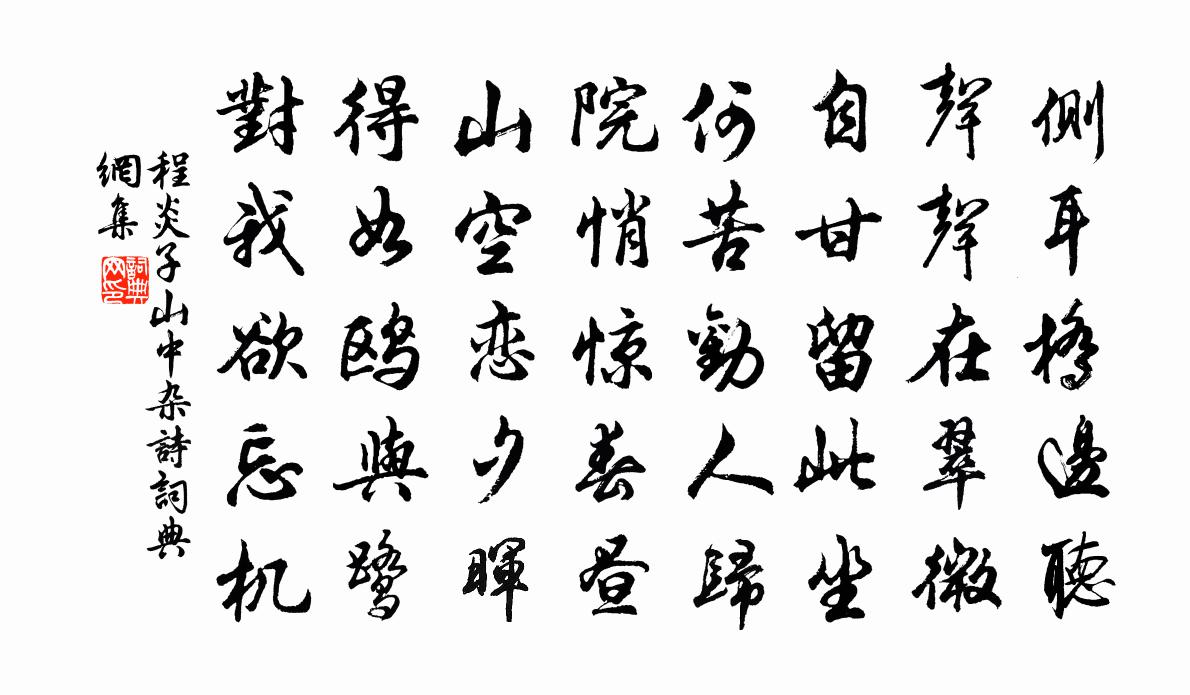 側耳橋邊聽
聲聲在翠微
自甘留此坐
何苦勸人歸
院悄惊春昼
山空恋夕暉
得如鸥與鹭
對我欲忘机
程炎子山中杂詩詞典
網集
詞典网印